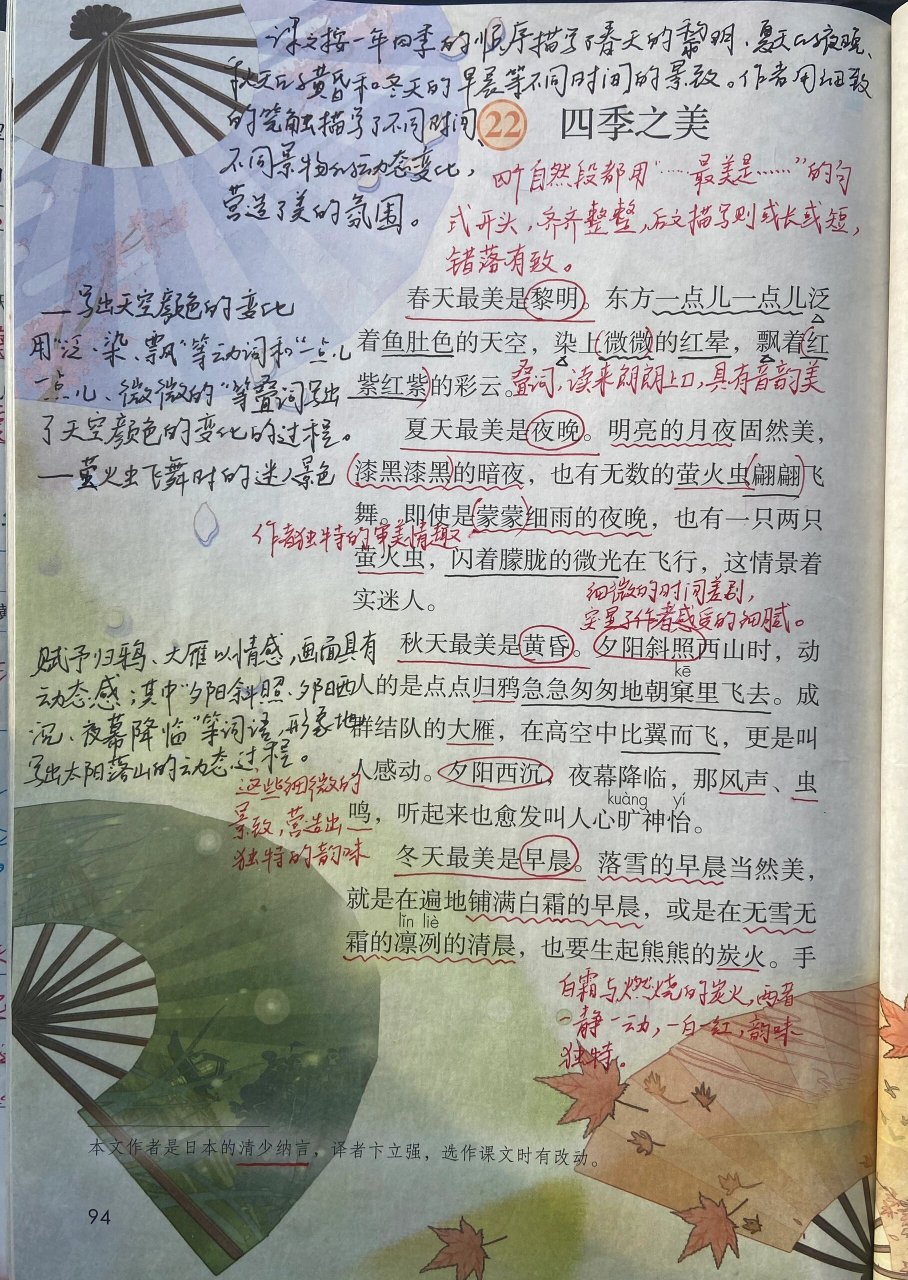 课文按一年四季的顺序描写了春天的黎明、夏天的夜晚、
秋天的黄昏和冬天的早晨等不同时间的景致。作者用细致
的笔触描写了不同时间、
不同景物的动态变化，
营造了美的氛围。
22 四季之美
四个自然段都用“……最美是……”的句
式开头，齐齐整整，后文描写则或长或短，
错落有致。
—写出天空颜色的变化
用“泛、染、飘”等动词和“一点儿
一点儿、微微的”等叠词写出
了天空颜色的变化的过程。
—萤火虫飞舞时的迷人景色
春天最美是黎明。东方一点儿一点儿泛
着鱼肚色的天空，染上微微的红晕，飘着红
紫红紫的彩云。
叠词，读来朗朗上口，具有音韵美
夏天最美是夜晚。明亮的月夜固然美，
漆黑漆黑的暗夜，也有无数的萤火虫翩翩飞
舞。即使是蒙蒙细雨的夜晚，也有一只两只
作者独特的审美情趣
萤火虫，闪着朦胧的微光在飞行，这情景着
实迷人。
细微的时间差别，
突显了作者感受的细腻。
赋予归鸦、大雁以情感，画面具有
动态感；其中“夕阳斜照、夕阳西
沉、夜幕降临”等词语，形象地
写出太阳落山的动态过程。
秋天最美是黄昏。夕阳斜照西山时，动
kē
人的是点点归鸦急急匆匆地朝窠里飞去。成
群结队的大雁，在高空中比翼而飞，更是叫
人感动。夕阳西沉，夜幕降临，那风声、虫
kuàng yí
鸣，听起来也愈发叫人心旷神怡。
这些细微的
景致，营造出
独特的韵味
冬天最美是早晨。落雪的早晨当然美，
就是在遍地铺满白霜的早晨，或是在无雪无
lǐn liè
霜的凛冽的清晨，也要生起熊熊的炭火。手
白霜与燃烧的炭火，两者
一静一动，一白一红，韵味
独特。
本文作者是日本的清少纳言，译者卞立强，选作课文时有改动。
94